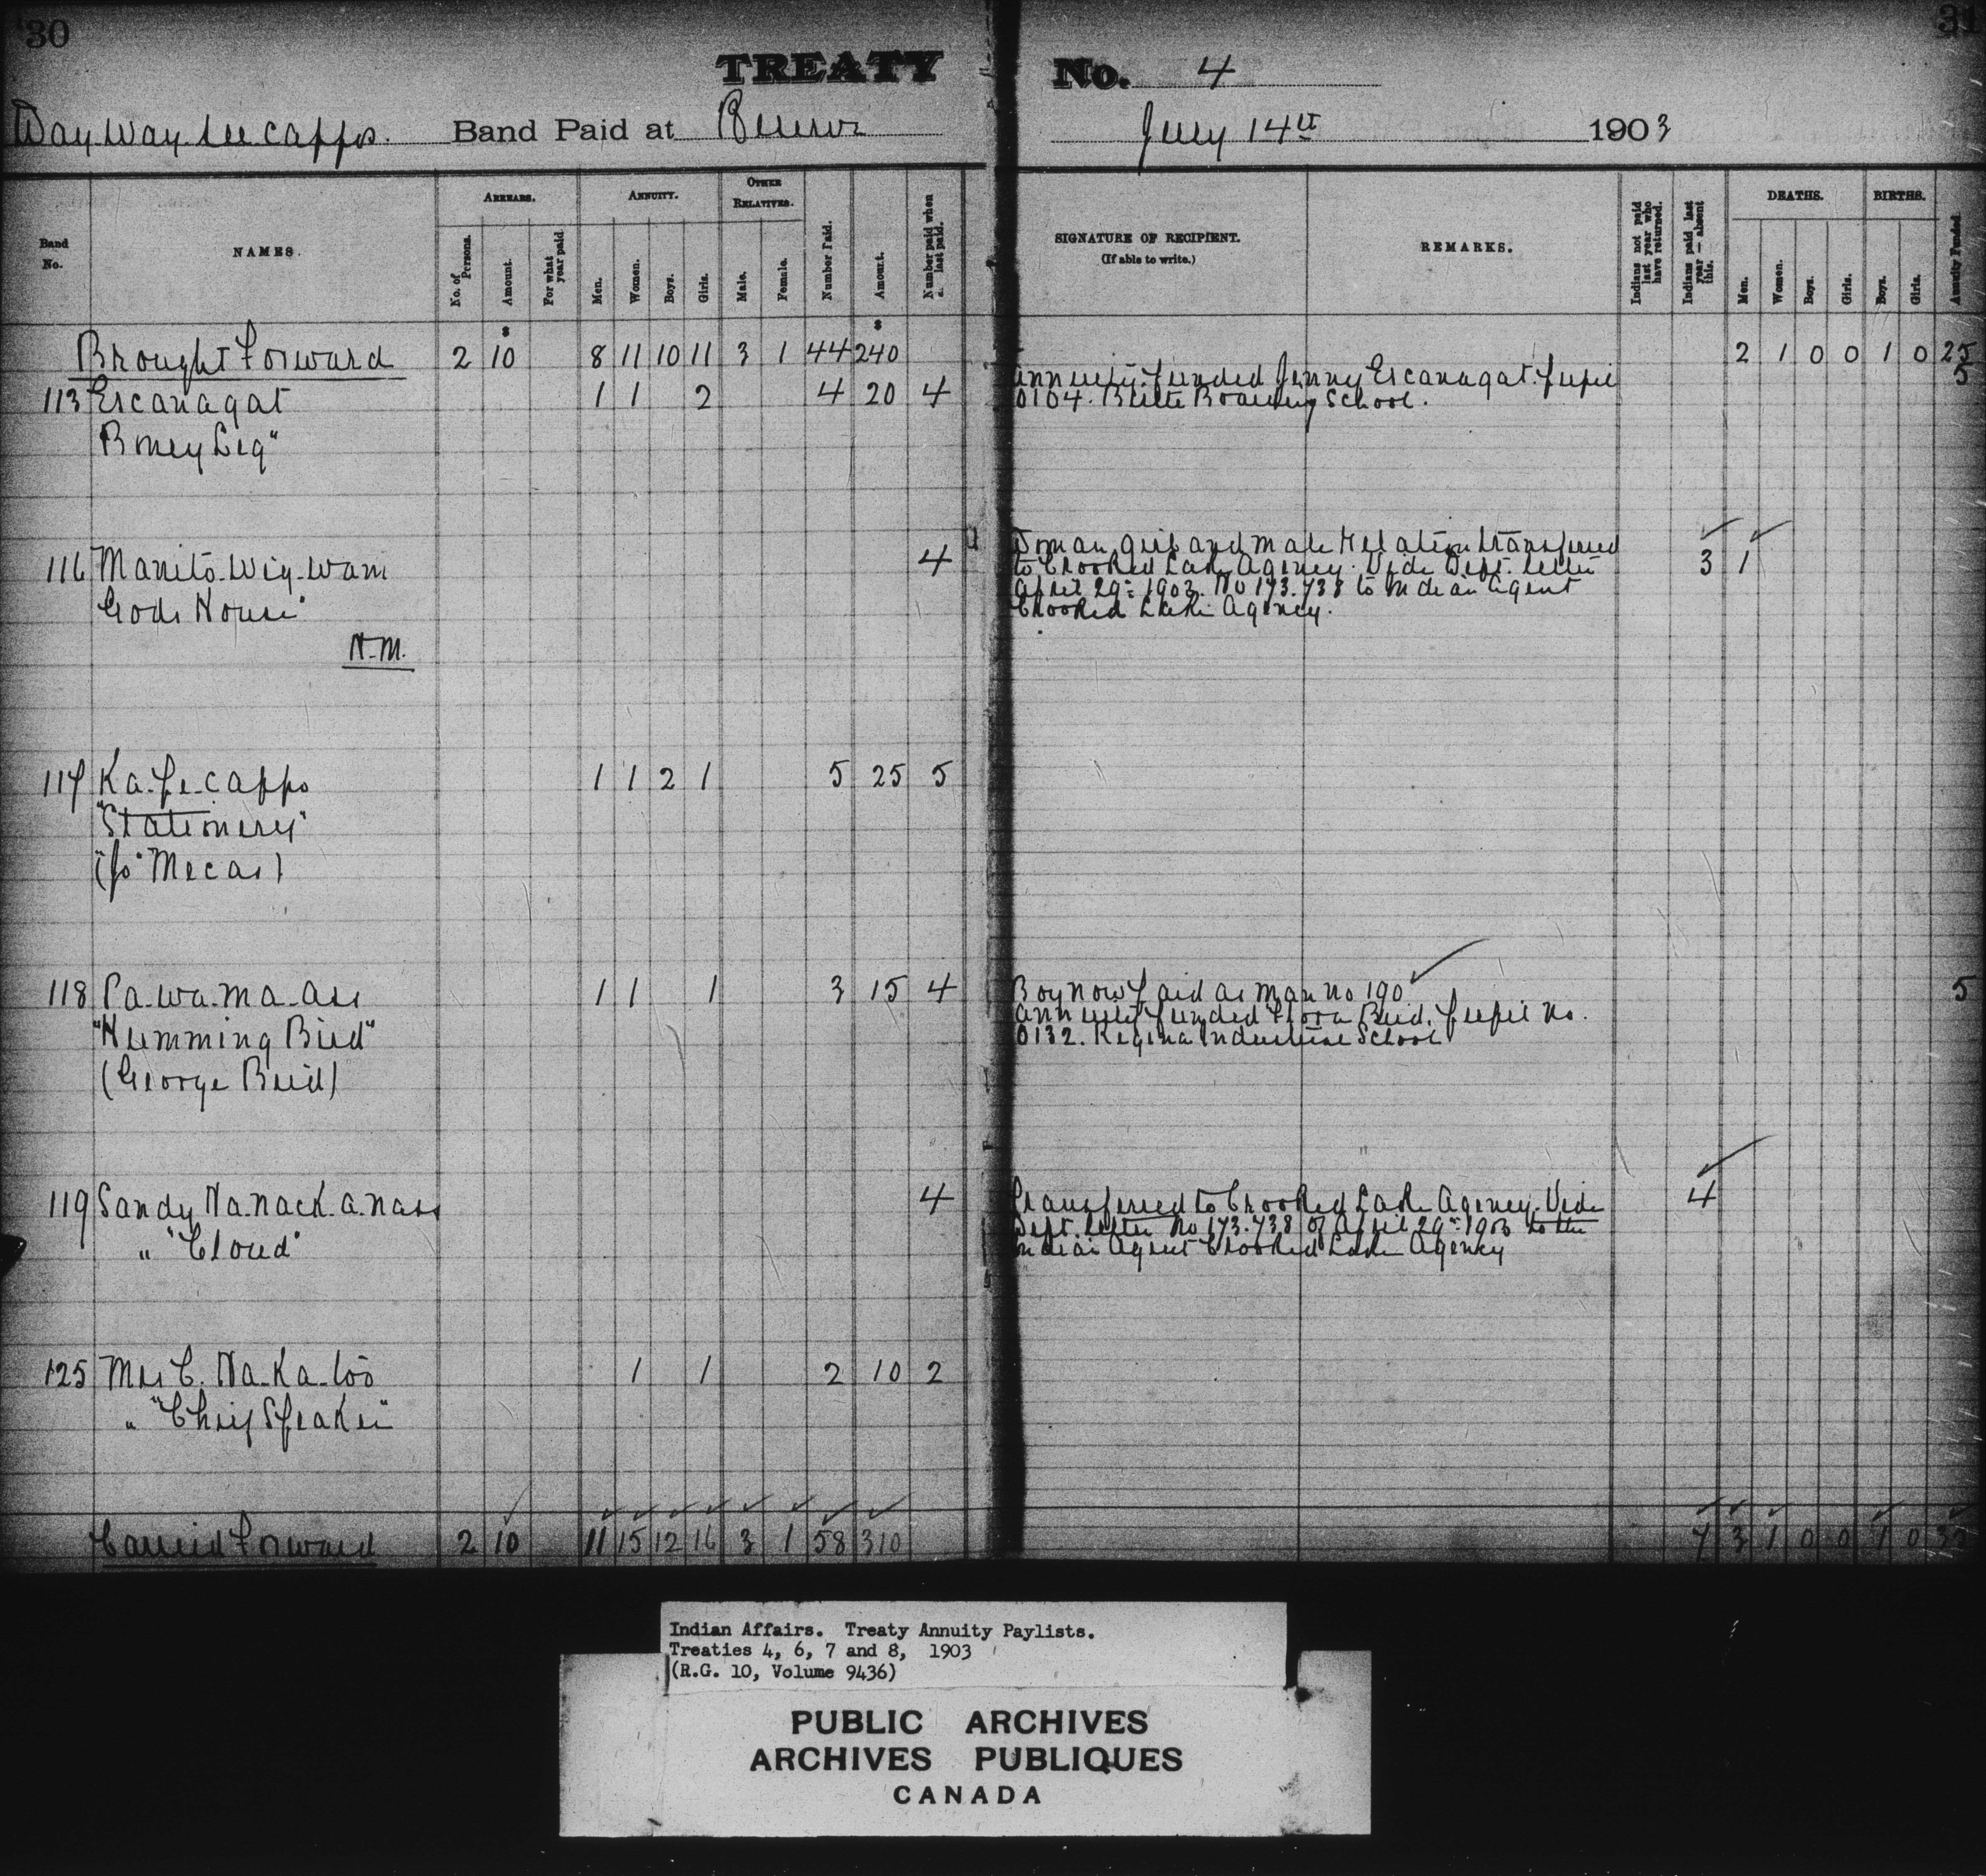 30
31
TREATY No. 4
Way way see capps. Band Paid at July 14th 1903
Band No.
NAMES.
ARREARS.
No. of Persons.
Amount.
For what year paid
ANNUITY.
Men.
Women.
Boys.
Girls.
OTHER RELATIVES.
Male.
Female.
Number Paid.
Amount.
Number paid when last paid.
SIGNATURE OF RECIPIENT.
(If able to write.)
REMARKS.
Indians not paid last year who have returned.
Indians paid last year — absent this.
DEATHS.
Men.
Women.
Boys.
Girls.
BIRTHS.
Boys.
Girls.
Annuity Funded
Brought Forward 2 10 8 11 10 11 3 1 44 240 2 1 0 0 1 0 25
113 Escanagat 1 1 2 4 20 4 Annuity funded Jenny Escanagat. pupil 5
0104. Birtle Boarding School.
Boney Leg"
116 Manito-Wig-Wam 4 Woman, girl and male Relation transferred 3 1
to Crooked Lake Agency. Vide Dept. letter
Gods House" April 29th 1903. No 173.738 to Indian Agent
Crooked Lake Agency.
N.M.
117 Ka-pe-cappo 1 1 2 1 5 25 5
"Stationery"
("Jo" Mecas)
118 Pa-wa-ma-ass 1 1 1 3 15 4 Boy now paid as man no 190 5
Annuity funded Flora Bird. pupil no.
"Humming Bird" 0132. Regina Industrial School
(George Bird)
119 Sandy Na.nack.a.nass 4 Transferred to Crooked Lake Agency. Vide 4
Dept. letter No 173.738 of April 29th 1903 to the
" "Cloud" Indian Agent Crooked Lake Agency
125 Mrs C. Na-Ka-too 1 1 2 10 2
" "Chief Speaker"
Carried Forward 2 10 11 15 12 16 3 1 58 310 7 3 1 0 0 1 0 35
Indian Affairs. Treaty Annuity Paylists.
Treaties 4, 6, 7 and 8, 1903
(R.G. 10, Volume 9436)
PUBLIC ARCHIVES
ARCHIVES PUBLIQUES
CANADA